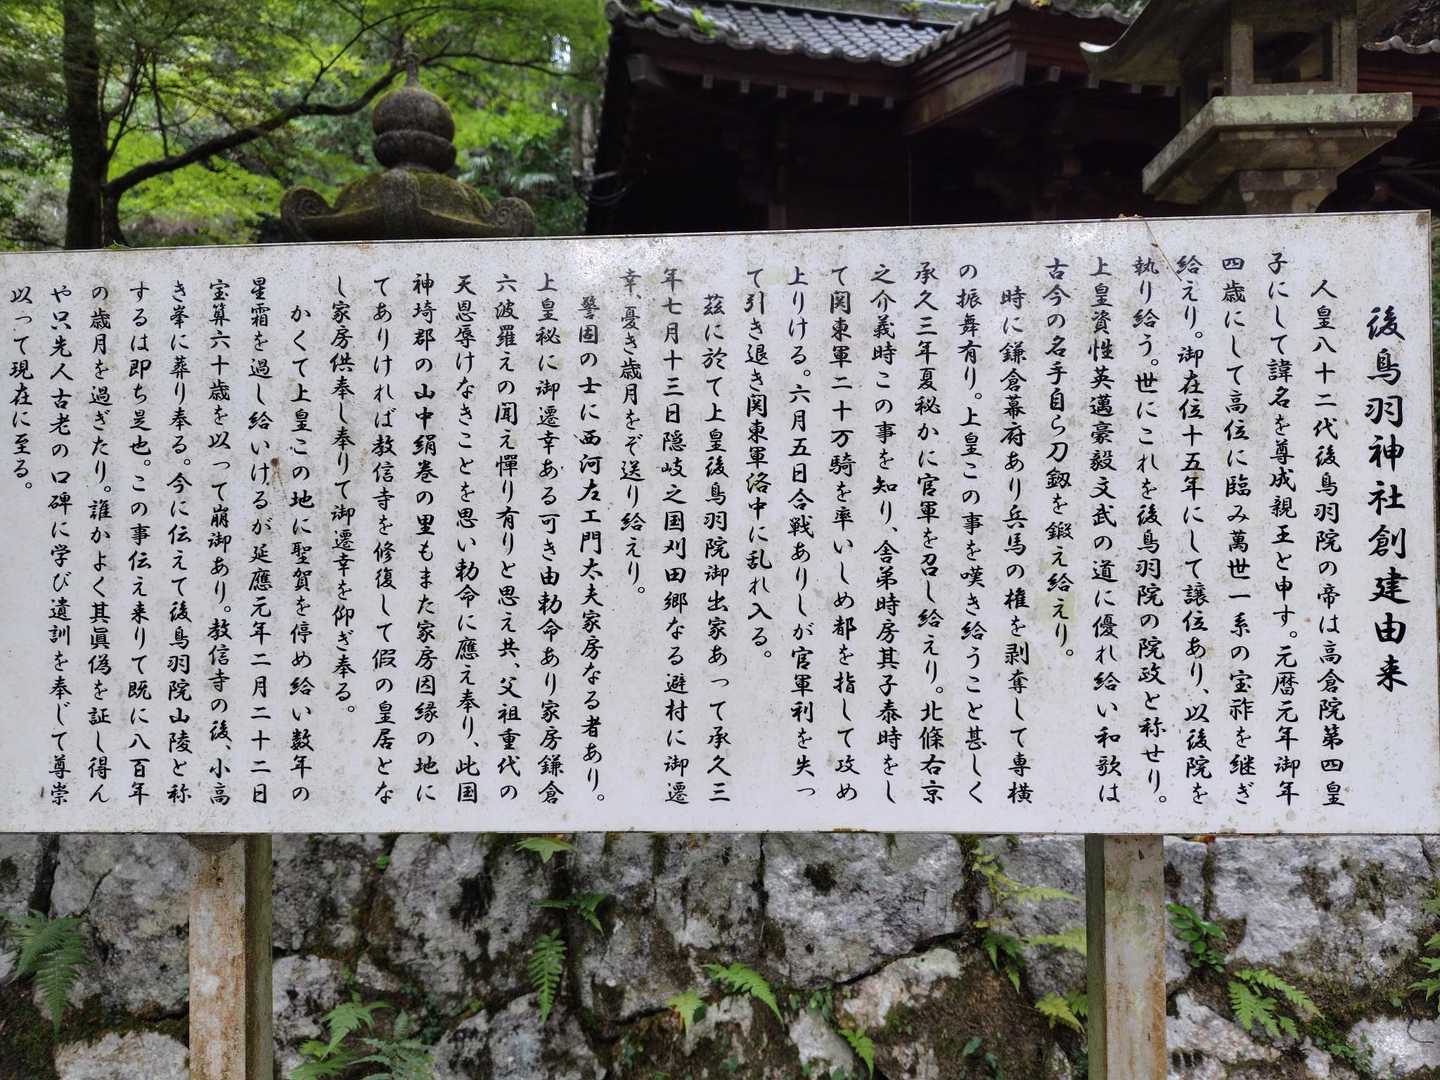 後鳥羽神社創建由来
人皇八十二代後鳥羽院の帝は高倉院第四皇
子にして諱名を尊成親王と申す。元暦元年御年
四歳にして高位に臨み萬世一系の宝祚を継ぎ
給えり。御在位十五年にして譲位あり、以後院を
執り給う。世にこれを後鳥羽院の院政と称せり。
上皇資性英邁豪毅文武の道に優れ給い和歌は
古今の名手自ら刀釼を鍛え給えり。
時に鎌倉幕府あり兵馬の権を剥奪して専横
の振舞有り。上皇この事を嘆き給うこと甚しく
承久三年夏秘かに官軍を召し給えり。北條右京
之介義時この事を知り、舎弟時房其子泰時をし
て関東軍二十万騎を率いしめ都を指して攻め
上りける。六月五日合戦ありしが官軍利を失っ
て引き退き関東軍洛中に乱れ入る。
茲に於て上皇後鳥羽院御出家あって承久三
年七月十三日隠岐之国刈田郷なる避村に御遷
幸、憂き歳月をぞ送り給えり。
警固の士に西河左工門太夫家房なる者あり。
上皇秘に御遷幸ある可き由勅命あり家房鎌倉
六波羅えの聞え憚り有りと思え共、父祖重代の
天恩辱けなきことを思い勅命に應え奉り、此国
神埼郡の山中絹巻の里もまた家房因縁の地に
てありければ教信寺を修復して假の皇居とな
し家房供奉し奉りて御遷幸を仰ぎ奉る。
かくて上皇この地に聖賀を停め給い数年の
星霜を過し給いけるが延應元年二月二十二日
宝算六十歳を以って崩御あり。教信寺の後、小高
き峯に葬り奉る。今に伝えて後鳥羽院山陵と称
するは即ち是也。この事伝え来りて既に八百年
の歳月を過ぎたり。誰かよく其眞偽を証し得ん
や只先人古老の口碑に学び遺訓を奉じて尊崇
以って現在に至る。